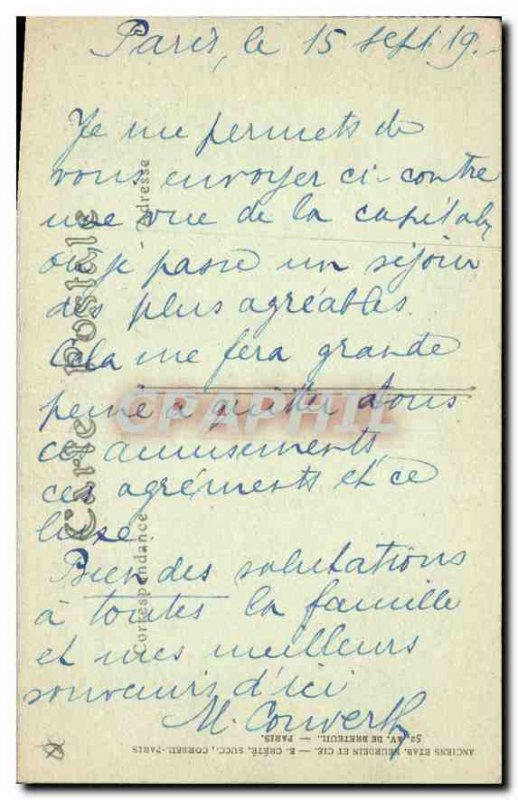 Paris, le 15 sept 19.
Je me permets de
vous envoyer ci-contre
une vue de la capitale
où je passe un séjour
des plus agréables.
Cela me fera grande
peine à quitter tous
ces amusements,
ces agréments et ce
luxe.
Bien des salutations
à toutes la famille
et mes meilleurs
souvenirs d'ici
M.
Carte Postale
Adresse
Correspondance
CPAPHIL
ANCIENS ETAB. NEURDEIN ET CIE. — E. CRÉTÉ, SUCC., CORBEIL-PARIS
52, AV. DE BRETEUIL. — PARIS.